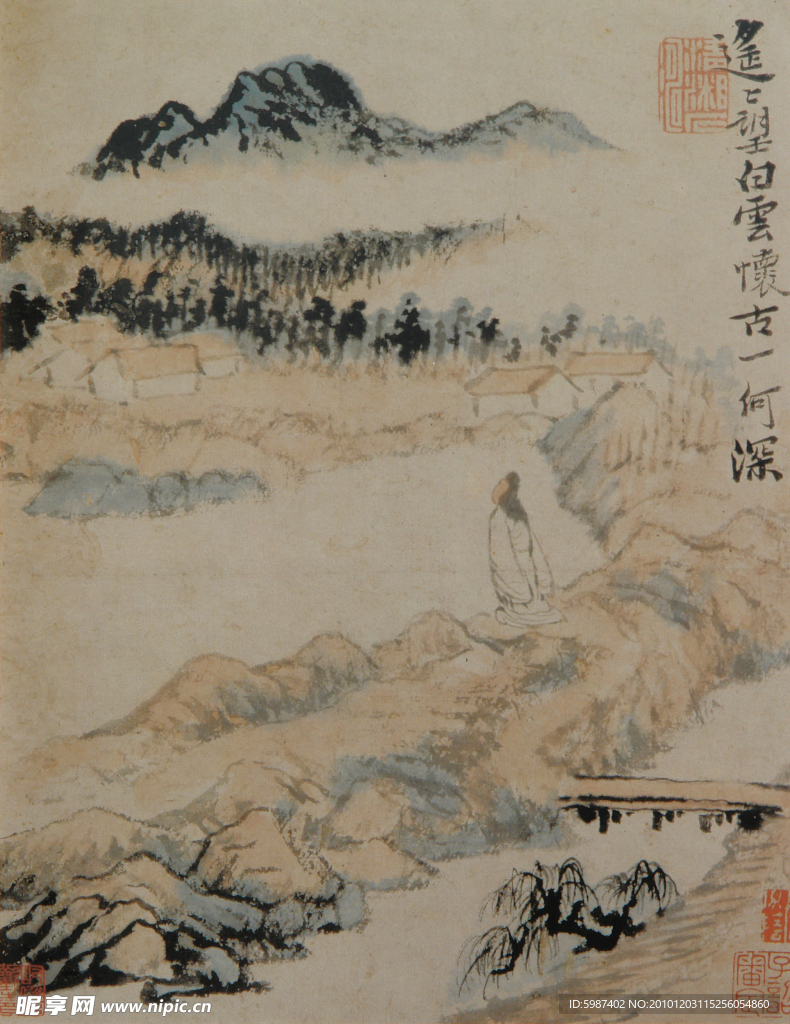 遙〻望白雲懷古一何深
昵享网 www.nipic.cn
ID:5987402 NO:20101203115256054860